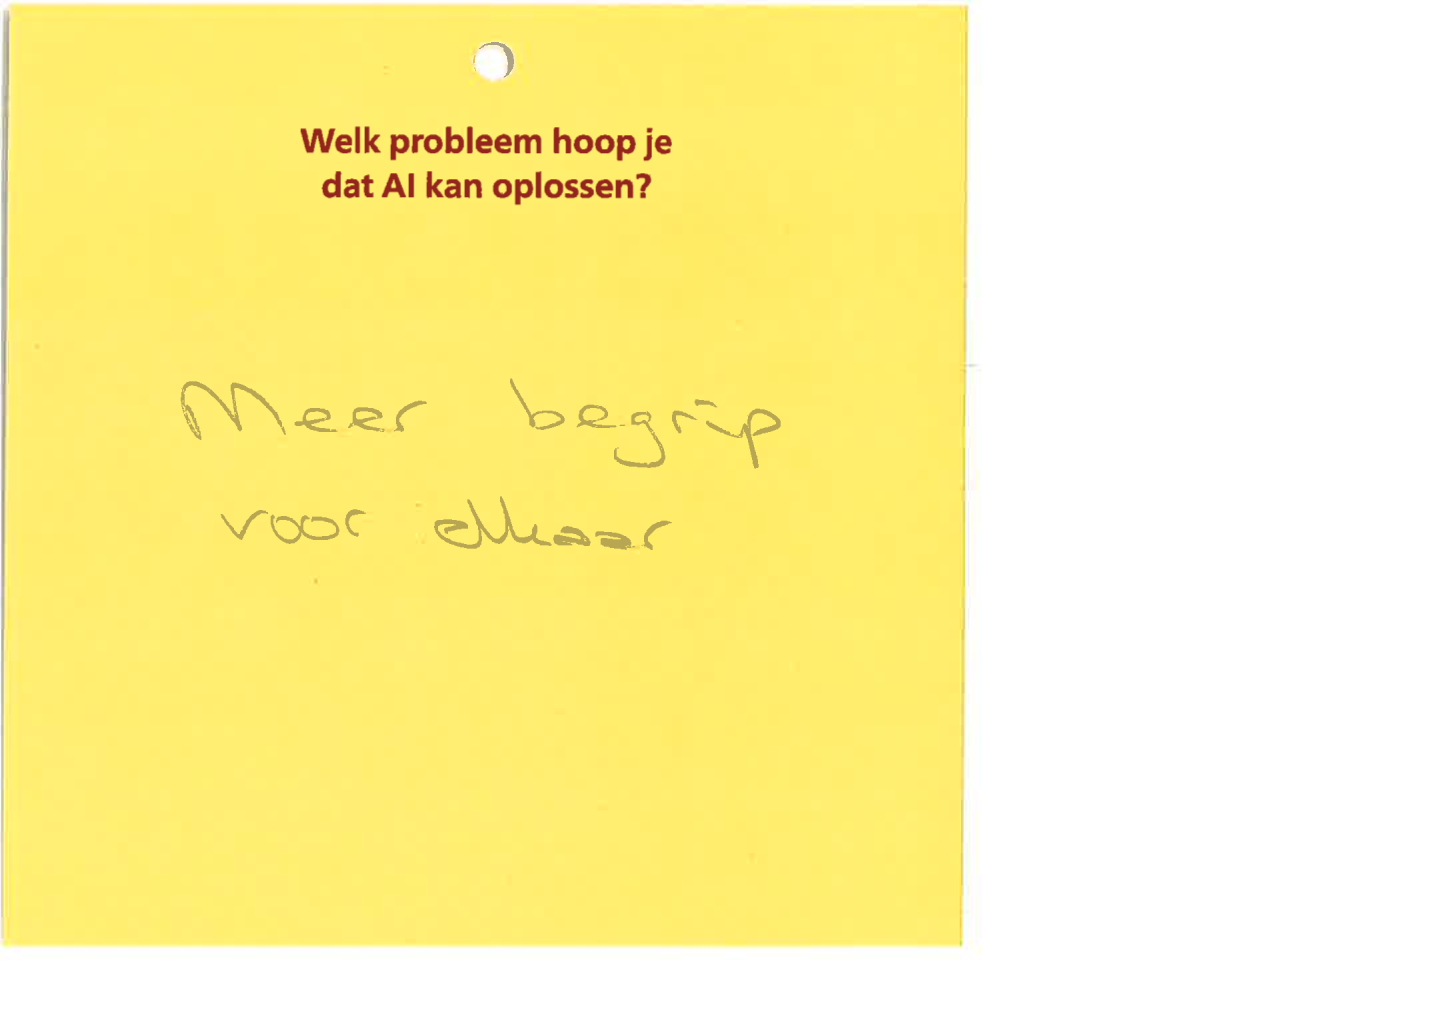 Welk probleem hoop je
dat AI kan oplossen?
Meer begrip
voor elkaar